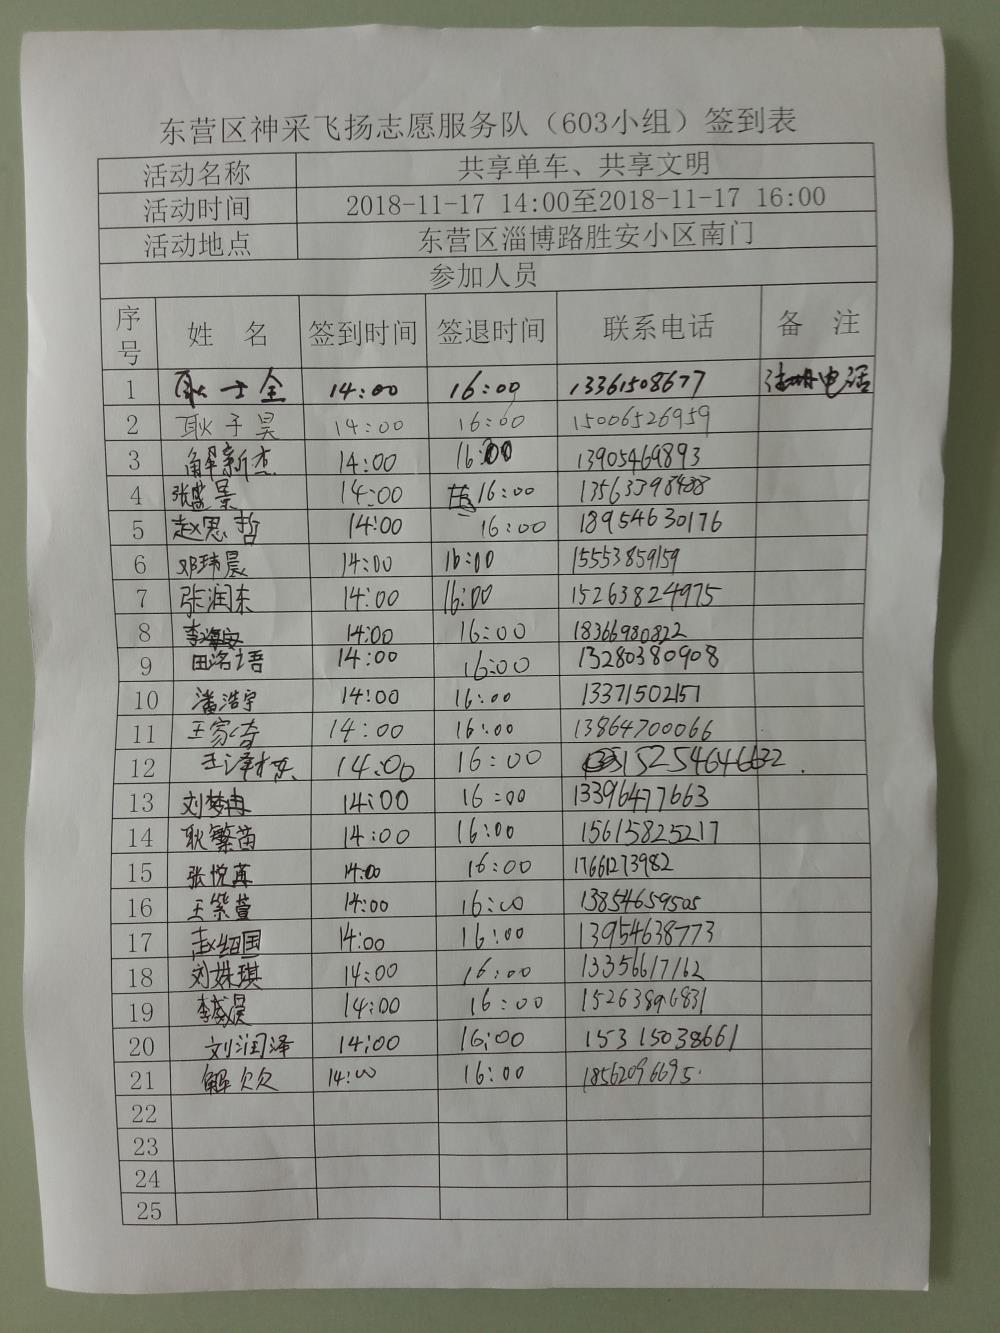 东营区神采飞扬志愿服务队（603小组）签到表
活动名称 共享单车、共享文明
活动时间 2018-11-17 14:00至2018-11-17 16:00
活动地点 东营区淄博路胜安小区南门
参加人员
序号 姓 名 签到时间 签退时间 联系电话 备 注
1 耿士全 14:00 16:00 13361508677 注册电话
2 耿子昊 14:00 16:00 15006526959
3 解新杰 14:00 16:00 13905469893
4 张景 14:00 16:00 13563398488
5 赵思哲 14:00 16:00 18954630176
6 邓玮晨 14:00 16:00 15553859159
7 张润东 14:00 16:00 15263824975
8 李海安 14:00 16:00 18366980822
9 田洺语 14:00 16:00 13280380908
10 潘浩宇 14:00 16:00 13371502151
11 王家奇 14:00 16:00 13864700066
12 王泽栋 14:00 16:00 15254646632
13 刘梦冉 14:00 16:00 13396477663
14 耿繁苗 14:00 16:00 15615825217
15 张悦 14:00 16:00 17661273982
16 王紫萱 14:00 16:00 13854659505
17 赵绍国 14:00 16:00 13954638773
18 刘姝琪 14:00 16:00 13356617162
19 李 14:00 16:00 15263896831
20 刘润泽 14:00 16:00 15315038661
21 解欠欠 14:00 16:00 18562096695
22
23
24
25